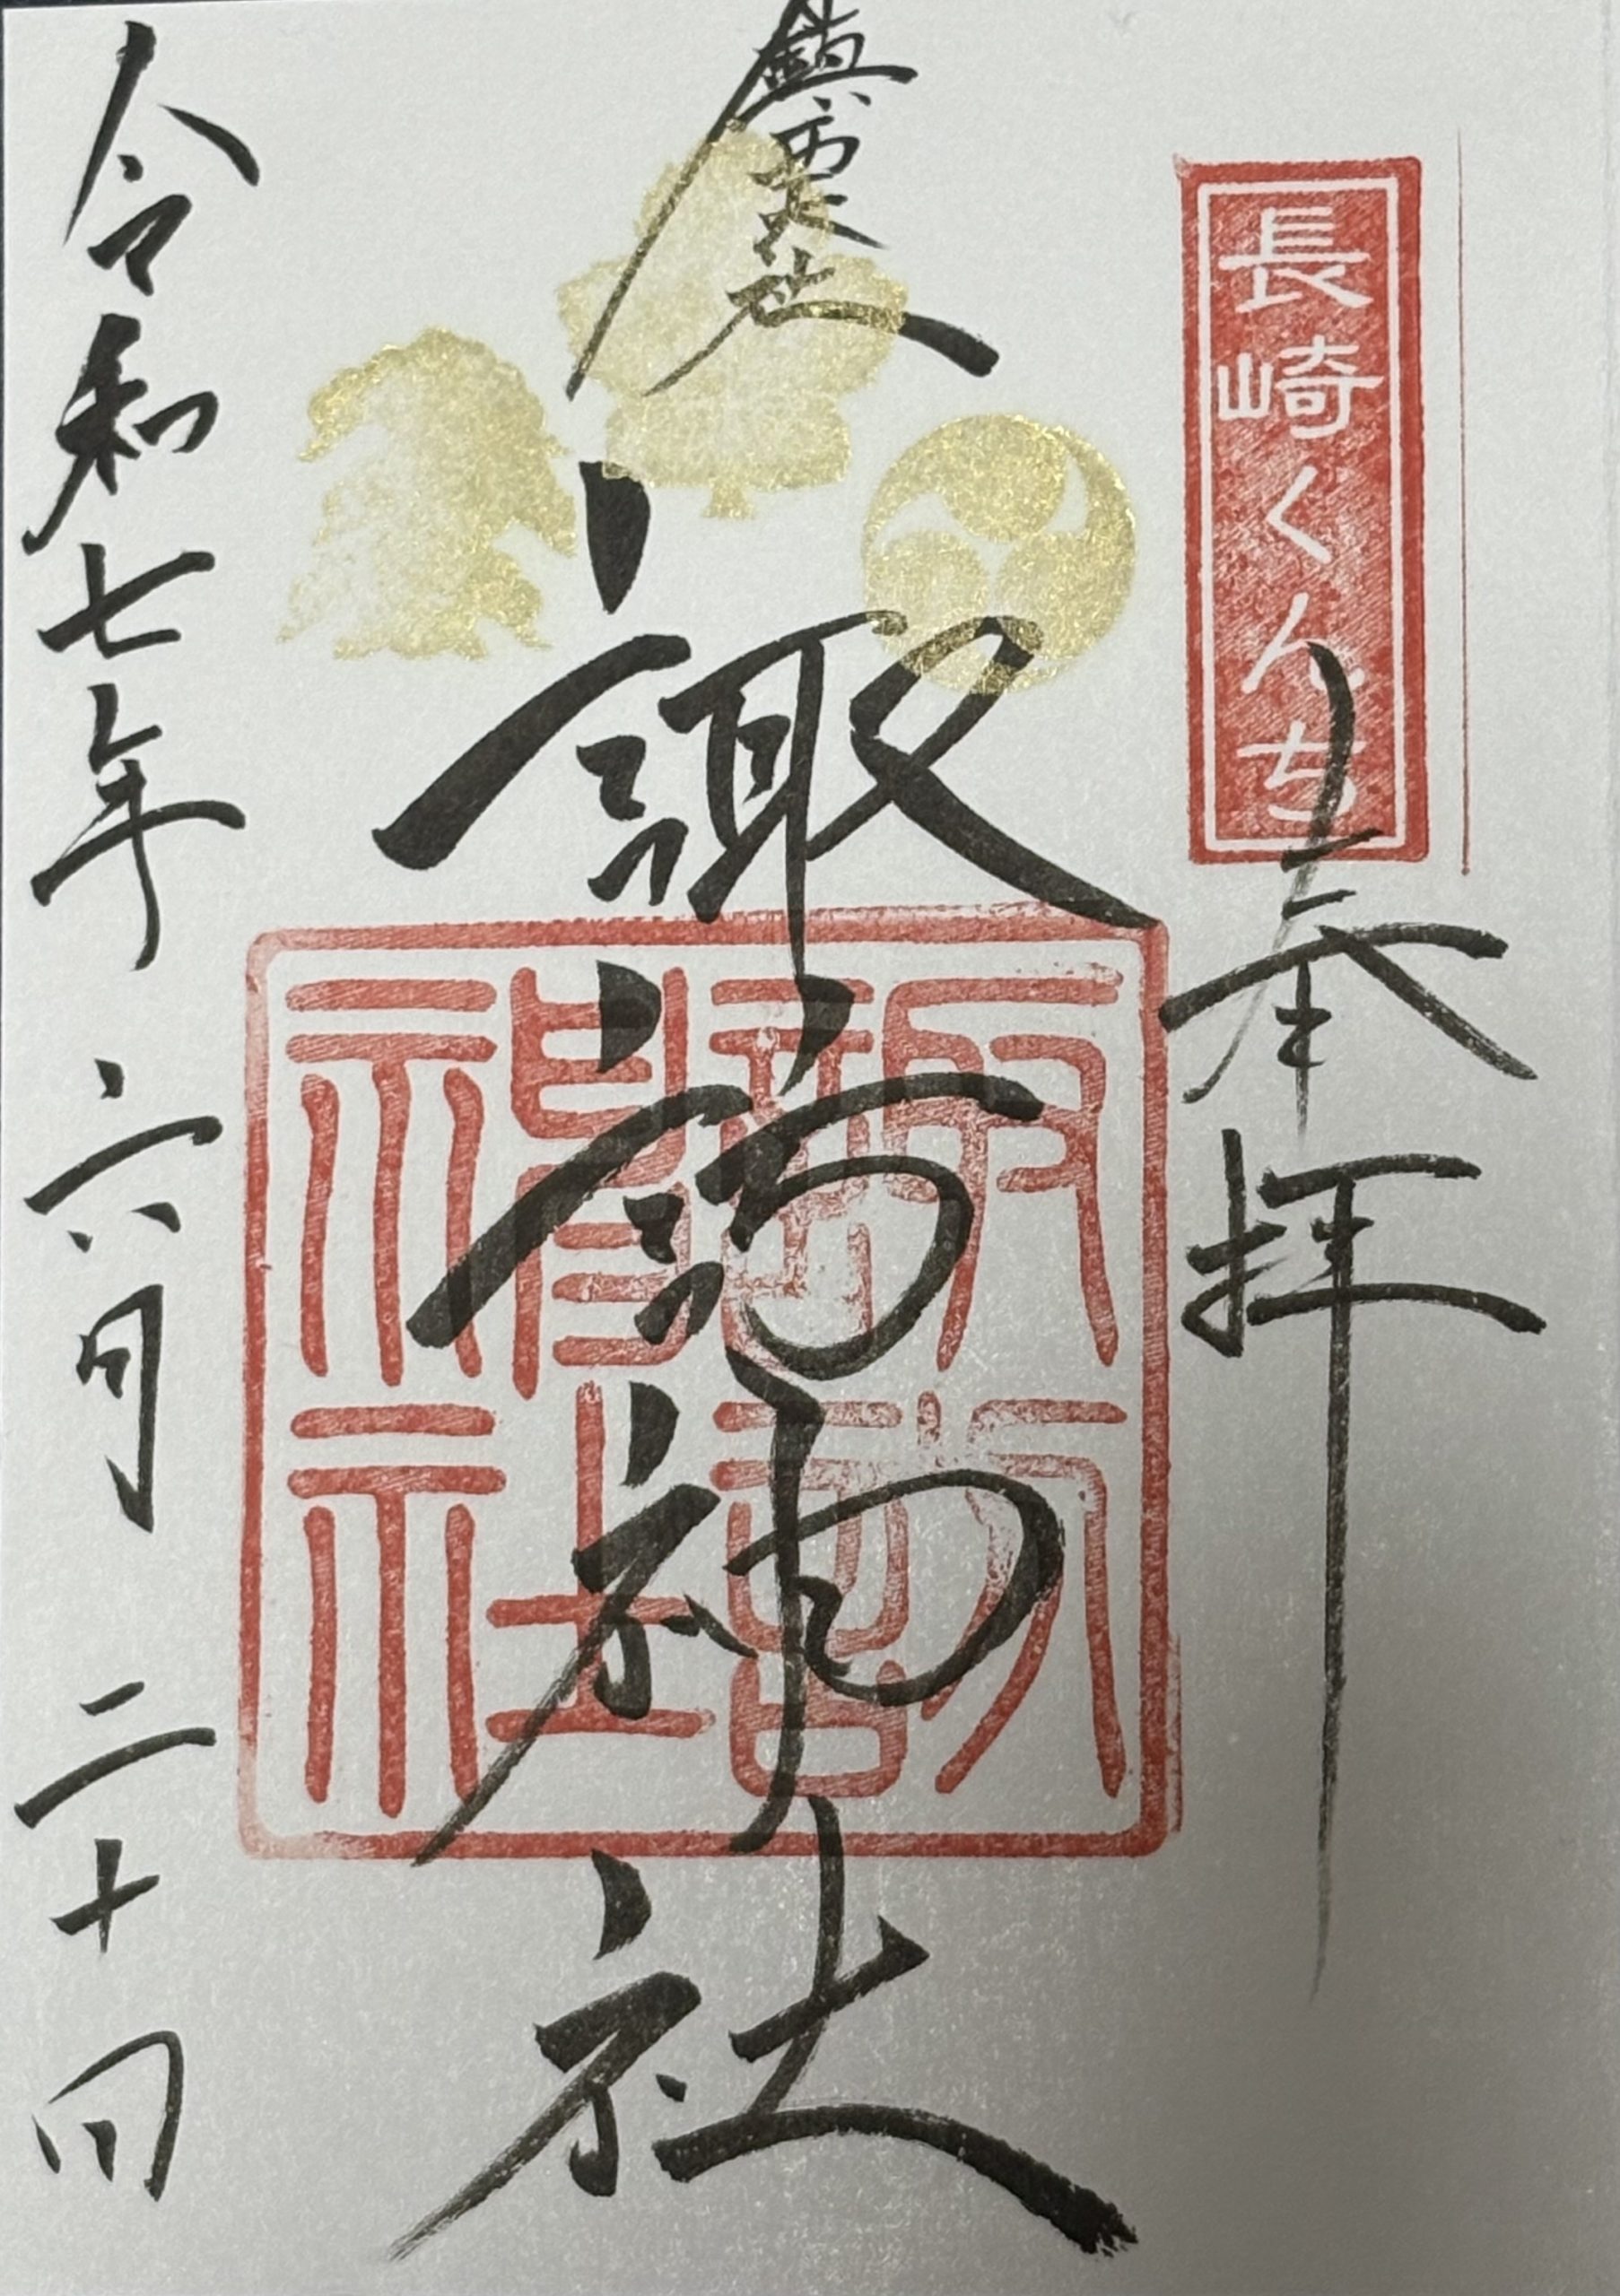 長崎くんち
奉拝
鎮西大社
諏訪神社
諏訪神社
令和七年六月二十日